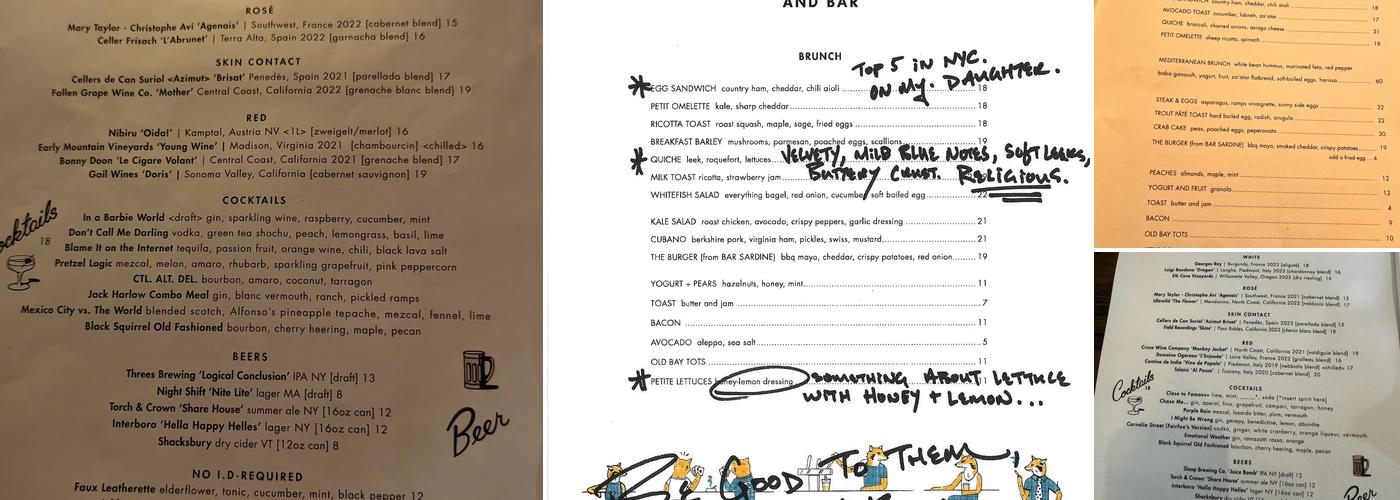 ROSÉ
Mary Taylor - Christophe Avi 'Agenais' | Southwest, France 2022 [cabernet blend] 15
Celler Frisach 'L'Abrunet' | Terra Alta, Spain 2022 [garnacha blend] 16
SKIN CONTACT
Cellers de Can Suriol <Azimut> 'Brisat' Penedès, Spain 2021 [parellada blend] 17
Fallen Grape Wine Co. 'Mother' Central Coast, California 2022 [grenache blanc blend] 19
RED
Nibiru 'Oida!' | Kamptal, Austria NV <1L> [zweigelt/merlot] 16
Early Mountain Vineyards 'Young Wine' | Madison, Virginia 2021 [chambourcin] <chilled> 16
Bonny Doon 'Le Cigare Volant' | Central Coast, California 2021 [grenache blend] 17
Gail Wines 'Doris' | Sonoma Valley, California [cabernet sauvignon] 19
COCKTAILS
Cocktails
18
In a Barbie World <draft> gin, sparkling wine, raspberry, cucumber, mint
Don't Call Me Darling vodka, green tea shochu, peach, lemongrass, basil, lime
Blame It on the Internet tequila, passion fruit, orange wine, chili, black lava salt
Pretzel Logic mezcal, melon, amaro, rhubarb, sparkling grapefruit, pink peppercorn
CTL. ALT. DEL. bourbon, amaro, coconut, tarragon
Jack Harlow Combo Meal gin, blanc vermouth, ranch, pickled ramps
Mexico City vs. The World blended scotch, Alfonso's pineapple tepache, mezcal, fennel, lime
Black Squirrel Old Fashioned bourbon, cherry heering, maple, pecan
BEERS
Threes Brewing 'Logical Conclusion' IPA NY [draft] 13
Night Shift 'Nite Lite' lager MA [draft] 8
Torch & Crown 'Share House' summer ale NY [16oz can] 12
Interboro 'Hella Happy Helles' lager NY [16oz can] 12
Shacksbury dry cider VT [12oz can] 8
Beer
NO I.D-REQUIRED
Faux Leatherette elderflower, tonic, cucumber, mint, black pepper 12
AND BAR
BRUNCH
TOP 5 IN NYC.
ON MY DAUGHTER.
EGG SANDWICH country ham, cheddar, chili aioli 18
PETIT OMELETTE kale, sharp cheddar 18
RICOTTA TOAST roast squash, maple, sage, fried eggs 18
BREAKFAST BARLEY mushrooms, parmesan, poached eggs, scallions 19
QUICHE leek, roquefort, lettuces
VELVETY, MILD BLUE NOTES, SOFT LEEKS,
BUTTERY CRUST. RELIGIOUS.
MILK TOAST ricotta, strawberry jam
WHITEFISH SALAD everything bagel, red onion, cucumber soft boiled egg 22
KALE SALAD roast chicken, avocado, crispy peppers, garlic dressing 21
CUBANO berkshire pork, virginia ham, pickles, swiss, mustard 21
THE BURGER [from BAR SARDINE] bbq mayo, cheddar, crispy potatoes, red onion 19
YOGURT + PEARS hazelnuts, honey, mint 11
TOAST butter and jam 7
BACON 11
AVOCADO aleppo, sea salt 5
OLD BAY TOTS 11
PETITE LETTUCES honey-lemon dressing
SOMETHING ABOUT LETTUCE
WITH HONEY + LEMON...
BE GOOD TO THEM,
country ham, cheddar, chili aioli 18
AVOCADO TOAST cucumber, labneh, za'atar 17
QUICHE broccoli, charred onions, asiago cheese 21
PETIT OMELETTE sheep ricotta, spinach 18
MEDITERRANEAN BRUNCH white bean hummus, marinated feta, red pepper
baba ganoush, yogurt, fruit, za'atar flatbread, soft-boiled eggs, harissa 60
STEAK & EGGS asparagus, ramps vinaigrette, sunny side eggs 32
TROUT PÂTÉ TOAST hard boiled egg, radish, arugula 22
CRAB CAKE peas, poached eggs, peperonata 30
THE BURGER [from BAR SARDINE] bbq mayo, smoked cheddar, crispy potatoes 19
add a fried egg 4
PEACHES almonds, maple, mint 12
YOGURT AND FRUIT granola 12
TOAST butter and jam 4
BACON 9
OLD BAY TOTS 10
WHITE
Georges Roy | Burgundy, France 2023 [aligoté] 18
Luigi Baudana 'Dragon' | Langhe, Piedmont, Italy 2023 [chardonnay blend] 16
Elk Cove Vineyards | Willamette Valley, Oregon 2023 [dry riesling] 16
ROSÉ
Mary Taylor - Christophe Avi 'Agenais' | Southwest, France 2021 [cabernet blend] 15
Idlewild 'The Flower' | Mendocino, North Coast, California 2022 [nebbiolo blend] 17
SKIN CONTACT
Cellers de Can Suriol 'Azimut Brisat' | Penedès, Spain 2023 [parellada blend] 15
Field Recordings 'Skins' | Paso Robles, California 2023 [chenin blanc blend] 18
RED
Cruse Wine Company 'Monkey Jacket' | North Coast, California 2021 [valdiguie blend] 19
Domaine Ogereau 'L'Enjouée' | Loire Valley, France 2022 [grolleau blend] 16
Cantine de India 'Vino da Popolo' | Piedmont, Italy 2019 [nebbiolo blend] <chilled> 17
Tolaini 'Al Passo' | Tuscany, Italy 2020 [cabernet blend] 20
COCKTAILS
Cocktails
18
Close to Famous+ lime, mint, _____*, soda [*insert spirit here]
Chase Me... gin, aperol, fixo, grapefruit, campari, tarragon, honey
Purple Rain mezcal, luxardo bitter, plum, vermouth
I Might Be Wrong gin, genepy, benedictine, lemon, absinthe
Cornelia Street [Fairfax's Version] vodka, ginger, white cranberry, orange liqueur, vermouth
Emotional Weather gin, ramazotti rossa, orange
Black Squirrel Old Fashioned bourbon, cherry heering, maple, pecan
BEERS
Sloop Brewing Co. 'Juice Bomb' IPA NY [draft] 12
Torch & Crown 'Share House' summer ale NY [16oz can] 12
Interboro 'Hella Happy Helles' lager NY [16oz can] 12
Shacksbury dry cider VT
Beer